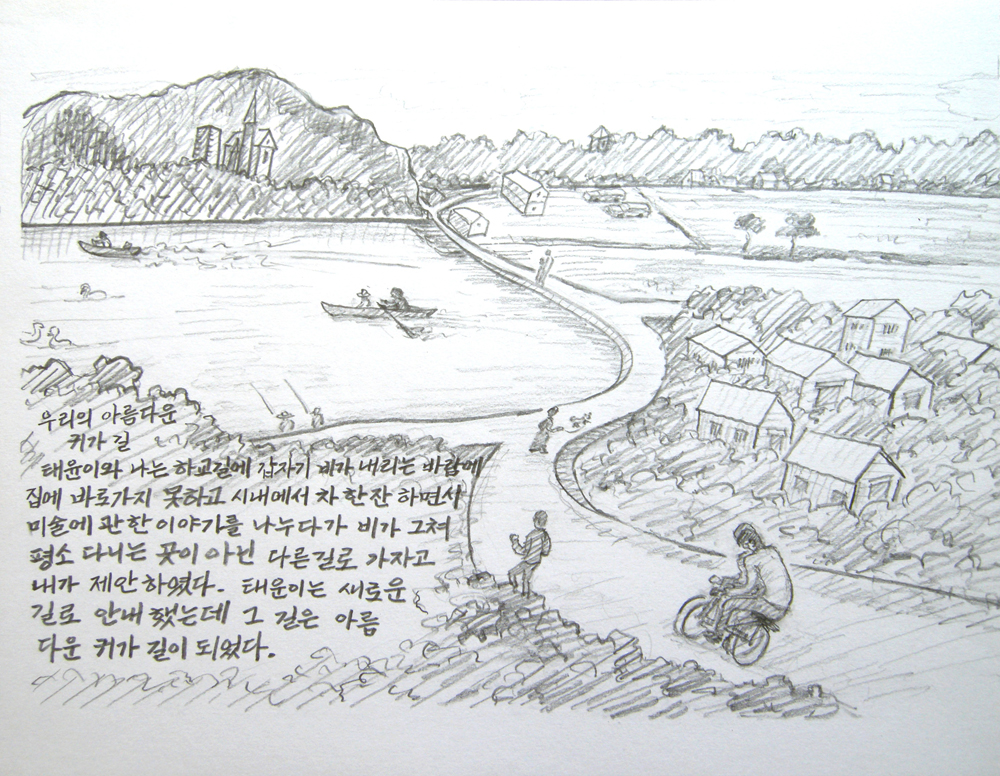 우리의 아름다운
커가 길
태윤이와 나는 하교길에 갑자기 비가 내리는 바람에
집에 바로가지 못하고 시내에서 차 한잔 하면서
미술에 관한 이야기를 나누다가 비가 그쳐
평소 다니는 곳이 아닌 다른길로 가자고
내가 제안 하였다. 태윤이는 새로운
길로 안내 했는데 그 길은 아름
다운 커가 길이 되었다.